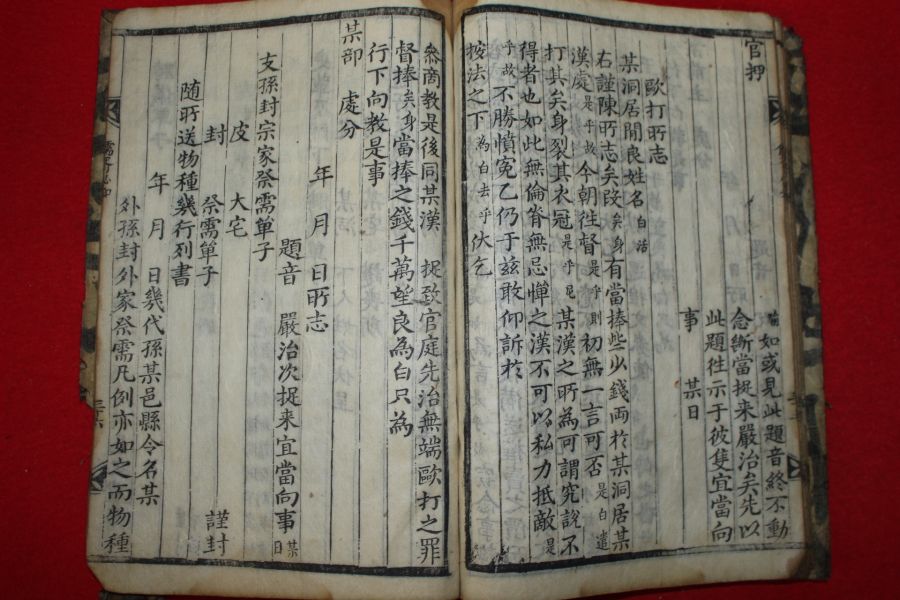 官押
喻如或見此題音終不動
念斷當捉来嚴治矣先以
此題徃示于彼隻宜當向
事 某日
歐打所志
某洞居閑良姓名白活
右謹陳所志矣段矣身有當捧些少錢両於某洞居某
漢處是乎故今朝徃督是乎則初無一言可否是白遣
打其矣身裂其衣冠是乎尼某漢之所為可謂究說不
得者也如此無倫脊無忌憚之漢不可以私力抵敵是
乎故不勝憤冤乙仍于兹敢仰訴於
按法之下為白去乎伏乞
叅商教是後同某漢 捉致官庭先治無端歐打之罪
督捧矣身當捧之錢千萬望良為白只為
行下向教是事
某部 處分
年 月 日所志
題音 嚴治次捉来宜當向事 某日
支孫封宗家祭需單子
皮 大宅
封 祭需單子 謹封
随所送物種幾行列書
年 月 日幾代孫某邑縣令名某
外孫封外家祭需凡例亦如之而物種